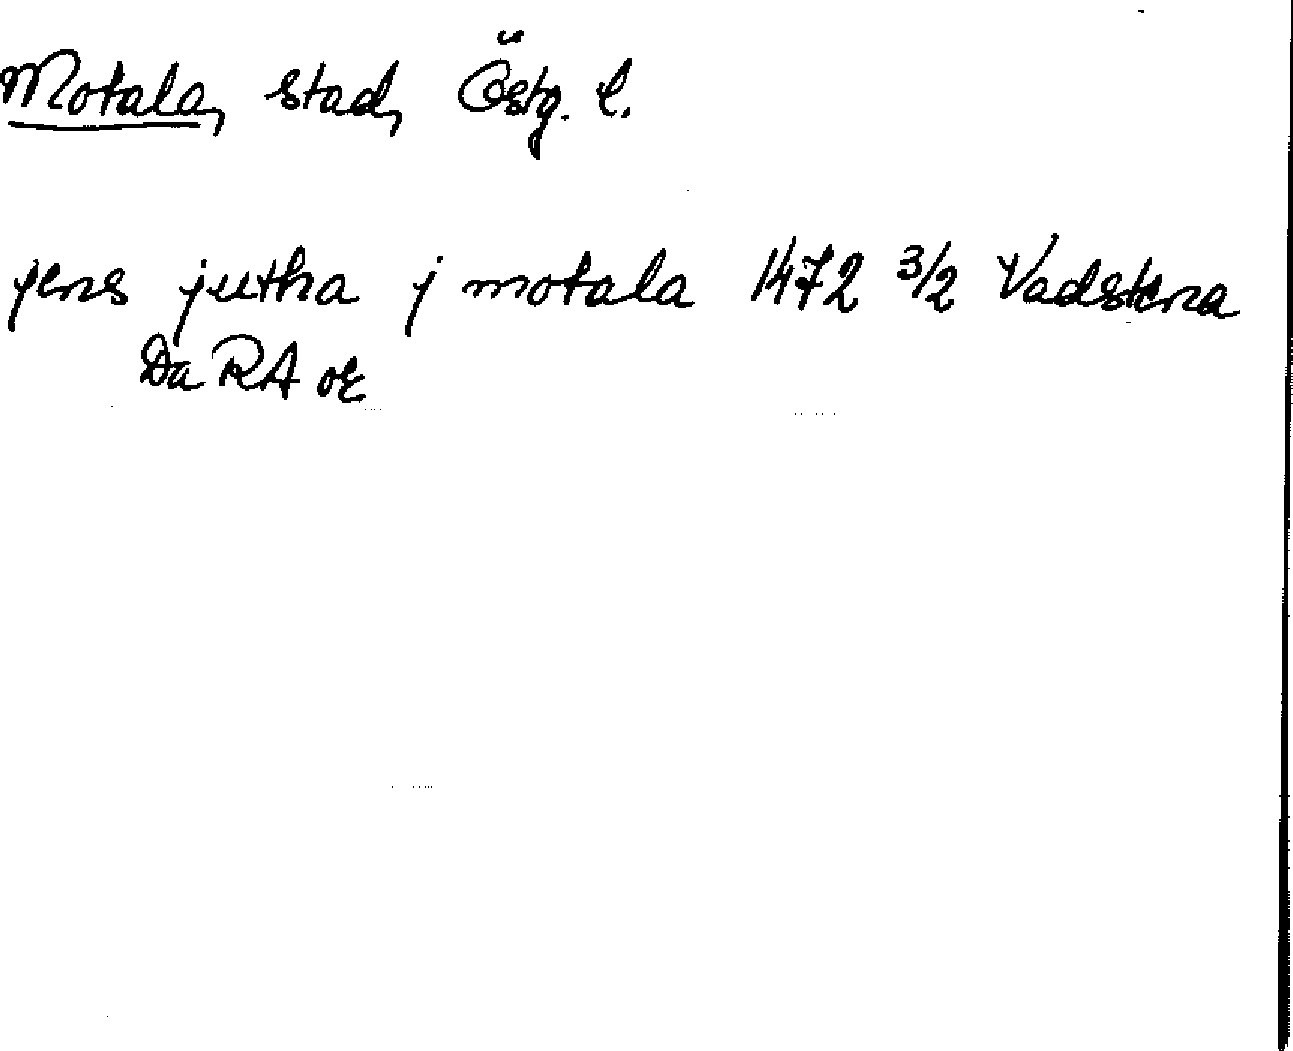 Motala, stad, Östg. l.
jens jutha j motala 1472 3/2 Vadstena
Da RA or